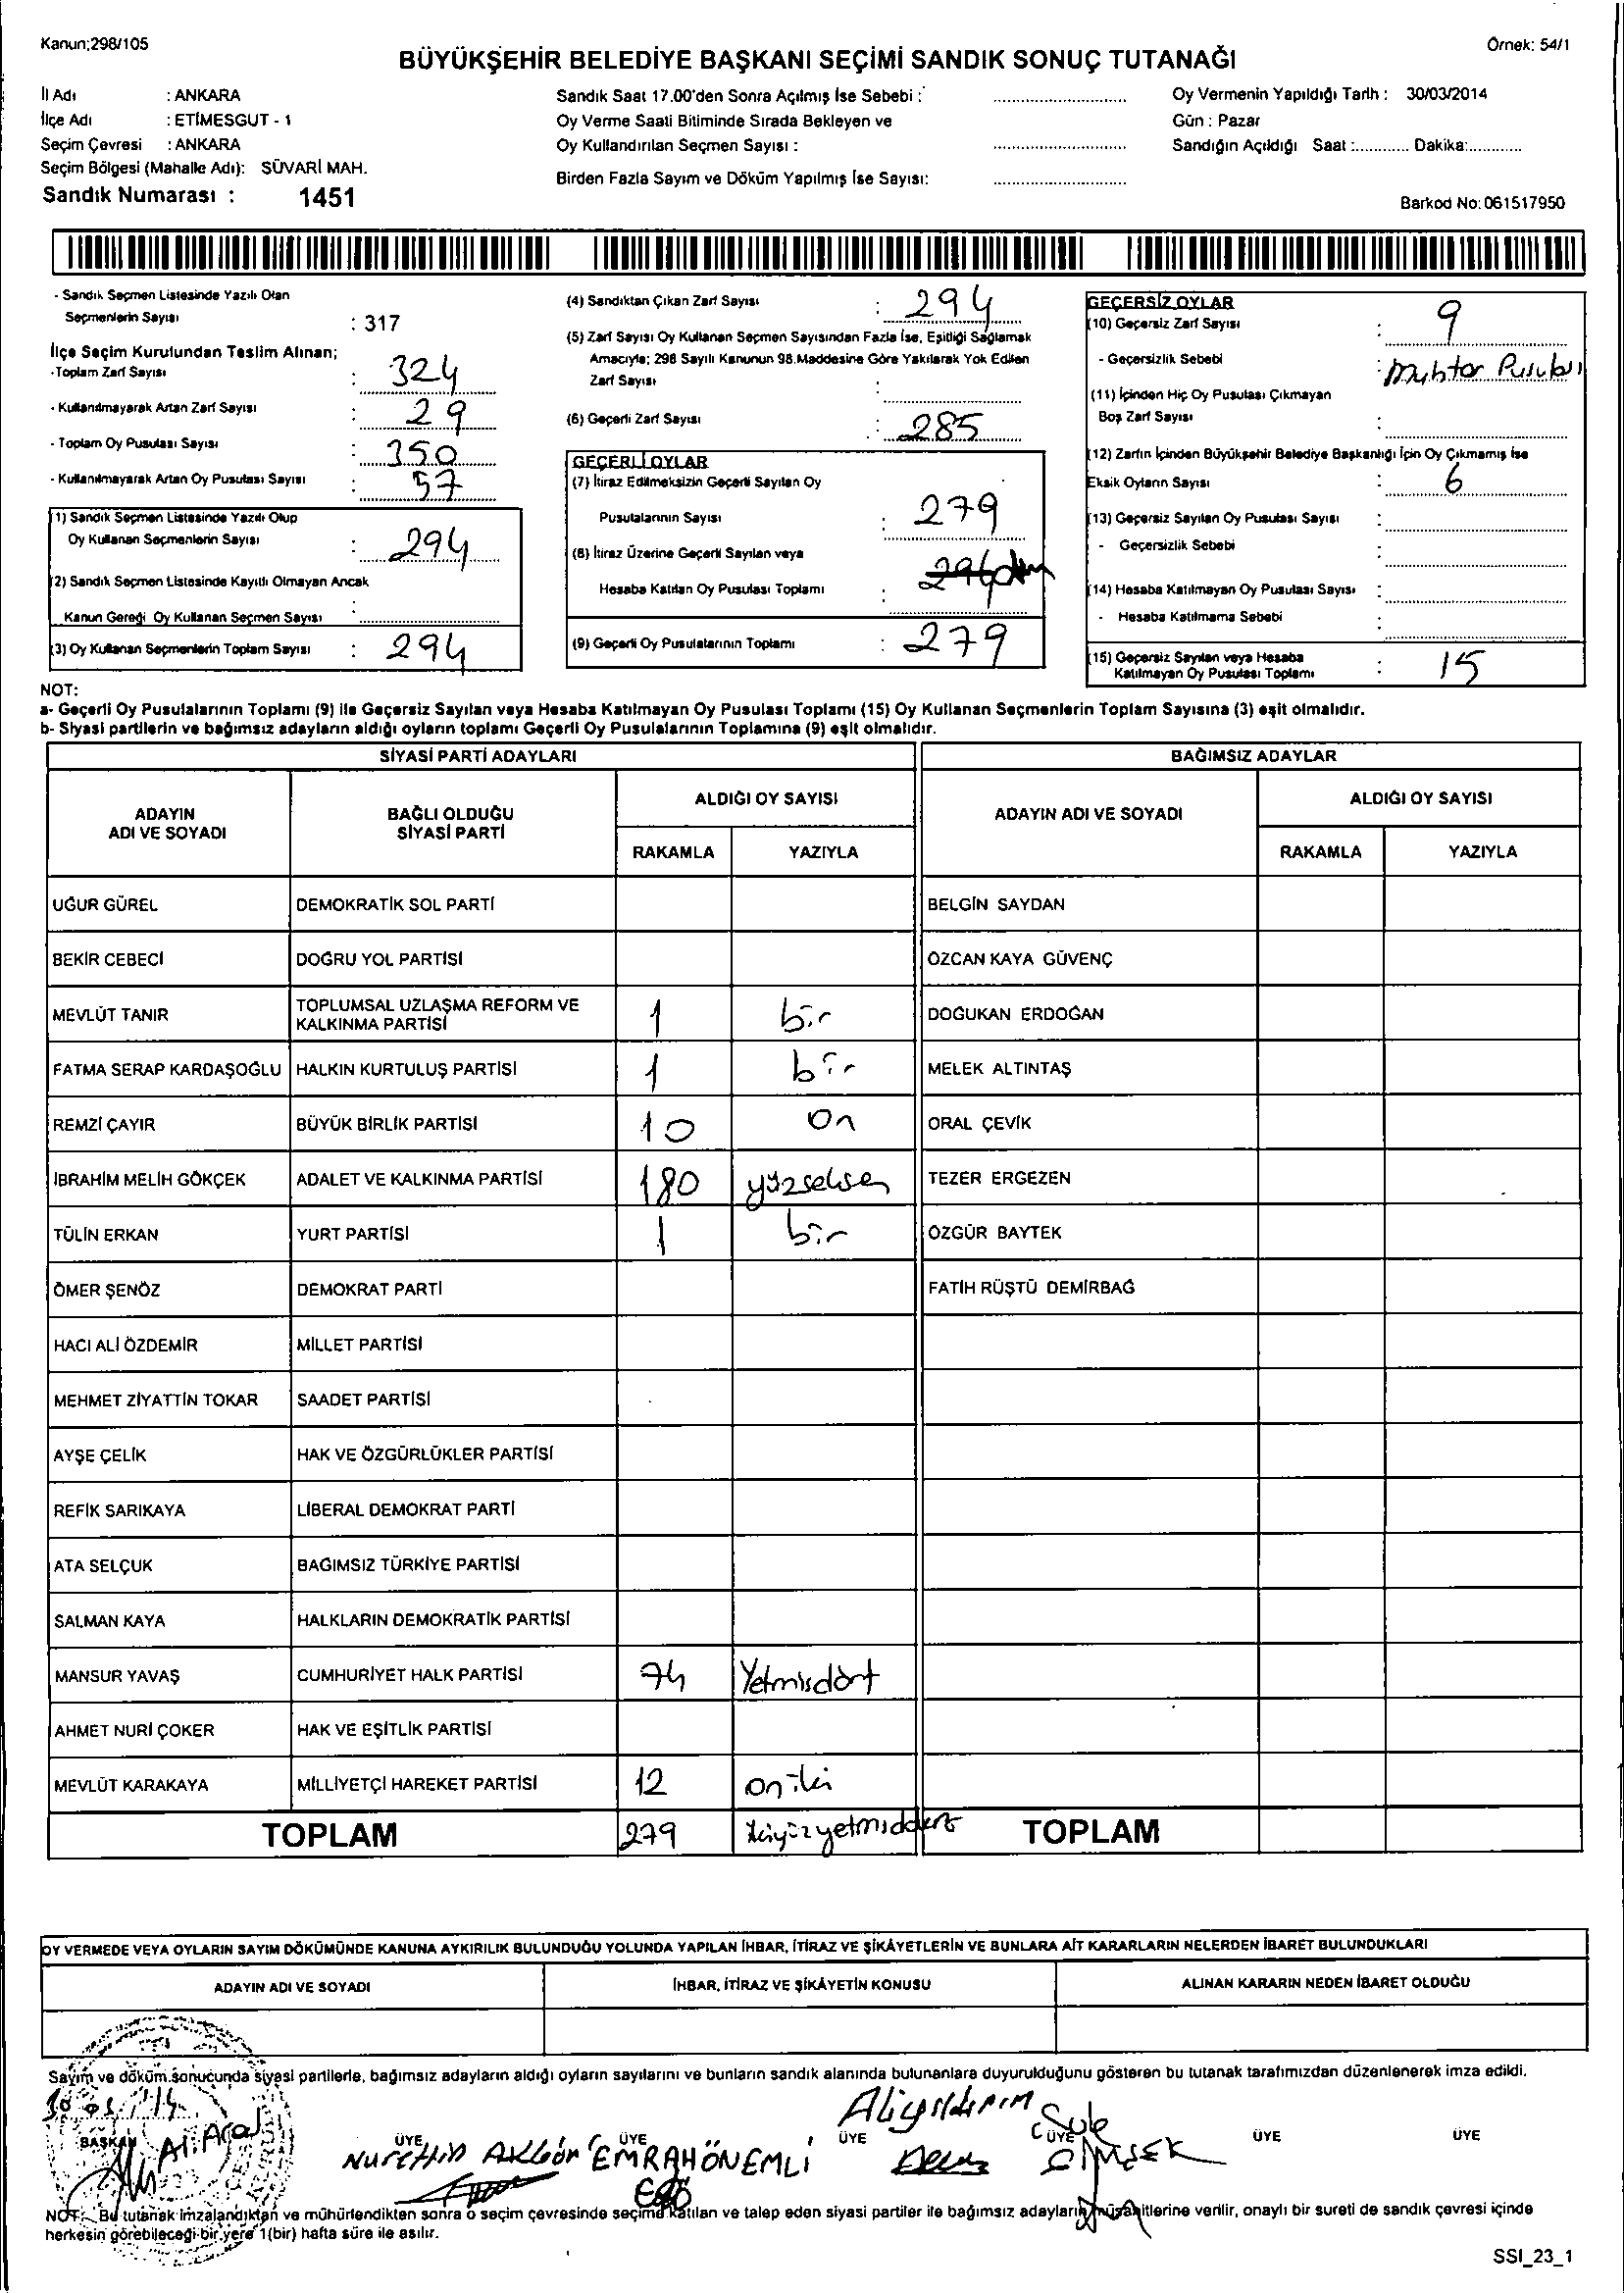 Kanun;298/105
Örnek: 54/1
BÜYÜKŞEHİR BELEDİYE BAŞKANI SEÇİMİ SANDIK SONUÇ TUTANAĞI
İl Adı : ANKARA
İlçe Adı : ETİMESGUT - 1
Seçim Çevresi : ANKARA
Seçim Bölgesi (Mahalle Adı): SÜVARİ MAH.
Sandık Numarası : 1451
Sandık Saat 17.00'den Sonra Açılmış İse Sebebi :
Oy Verme Saati Bitiminde Sırada Bekleyen ve
Oy Kullandırılan Seçmen Sayısı :
Birden Fazla Sayım ve Döküm Yapılmış İse Sayısı:
Oy Vermenin Yapıldığı Tarih : 30/03/2014
Gün : Pazar
Sandığın Açıldığı Saat :............ Dakika:............
Barkod No: 061517950
- Sandık Seçmen Listesinde Yazılı Olan
Seçmenlerin Sayısı : 317
İlçe Seçim Kurulundan Teslim Alınan;
-Toplam Zarf Sayısı : 324
- Kullanılmayarak Artan Zarf Sayısı : 29
- Toplam Oy Pusulası Sayısı : 350
- Kullanılmayarak Artan Oy Pusulası Sayısı : 57
(1) Sandık Seçmen Listesinde Yazılı Olup
Oy Kullanan Seçmenlerin Sayısı : 294
(2) Sandık Seçmen Listesinde Kayıtlı Olmayan Ancak
Kanun Gereği Oy Kullanan Seçmen Sayısı :
(3) Oy Kullanan Seçmenlerin Toplam Sayısı : 294
(4) Sandıktan Çıkan Zarf Sayısı : 294
(5) Zarf Sayısı Oy Kullanan Seçmen Sayısından Fazla İse, Eşitliği Sağlamak
Amacıyla; 298 Sayılı Kanunun 98.Maddesine Göre Yakılarak Yok Edilen
Zarf Sayısı :
(6) Geçerli Zarf Sayısı : 285
GEÇERLİ OYLAR
(7) İtiraz Edilmeksizin Geçerli Sayılan Oy
Pusulalarının Sayısı : 279
(8) İtiraz Üzerine Geçerli Sayılan veya
Hesaba Katılan Oy Pusulası Toplamı :
(9) Geçerli Oy Pusulalarının Toplamı : 279
GEÇERSİZ OYLAR
(10) Geçersiz Zarf Sayısı : 9
- Geçersizlik Sebebi : Muhtar Pusulası
(11) İçinden Hiç Oy Pusulası Çıkmayan
Boş Zarf Sayısı :
(12) Zarfın İçinden Büyükşehir Belediye Başkanlığı İçin Oy Çıkmamış İse
Eksik Oyların Sayısı : 6
(13) Geçersiz Sayılan Oy Pusulası Sayısı :
- Geçersizlik Sebebi :
(14) Hesaba Katılmayan Oy Pusulası Sayısı :
- Hesaba Katılmama Sebebi :
(15) Geçersiz Sayılan veya Hesaba
Katılmayan Oy Pusulası Toplamı : 15
NOT:
a- Geçerli Oy Pusulalarının Toplamı (9) ile Geçersiz Sayılan veya Hesaba Katılmayan Oy Pusulası Toplamı (15) Oy Kullanan Seçmenlerin Toplam Sayısına (3) eşit olmalıdır.
b- Siyasi partilerin ve bağımsız adayların aldığı oyların toplamı Geçerli Oy Pusulalarının Toplamına (9) eşit olmalıdır.
SİYASİ PARTİ ADAYLARI
BAĞIMSIZ ADAYLAR
ADAYIN ADI VE SOYADI
BAĞLI OLDUĞU SİYASİ PARTİ
ALDIĞI OY SAYISI
RAKAMLA YAZIYLA
ADAYIN ADI VE SOYADI
ALDIĞI OY SAYISI
RAKAMLA YAZIYLA
UĞUR GÜREL DEMOKRATİK SOL PARTİ BELGİN SAYDAN
BEKİR CEBECİ DOĞRU YOL PARTİSİ ÖZCAN KAYA GÜVENÇ
MEVLÜT TANIR TOPLUMSAL UZLAŞMA REFORM VE KALKINMA PARTİSİ 1 bir DOĞUKAN ERDOĞAN
FATMA SERAP KARDAŞOĞLU HALKIN KURTULUŞ PARTİSİ 1 bir MELEK ALTINTAŞ
REMZİ ÇAYIR BÜYÜK BİRLİK PARTİSİ 10 On ORAL ÇEVİK
İBRAHİM MELİH GÖKÇEK ADALET VE KALKINMA PARTİSİ 180 yüzseksen TEZER ERGEZEN
TÜLİN ERKAN YURT PARTİSİ 1 bir ÖZGÜR BAYTEK
ÖMER ŞENÖZ DEMOKRAT PARTİ FATİH RÜŞTÜ DEMİRBAĞ
HACI ALİ ÖZDEMİR MİLLET PARTİSİ
MEHMET ZİYATTİN TOKAR SAADET PARTİSİ
AYŞE ÇELİK HAK VE ÖZGÜRLÜKLER PARTİSİ
REFİK SARIKAYA LİBERAL DEMOKRAT PARTİ
ATA SELÇUK BAĞIMSIZ TÜRKİYE PARTİSİ
SALMAN KAYA HALKLARIN DEMOKRATİK PARTİSİ
MANSUR YAVAŞ CUMHURİYET HALK PARTİSİ 74 Yetmisdört
AHMET NURİ ÇOKER HAK VE EŞİTLİK PARTİSİ
MEVLÜT KARAKAYA MİLLİYETÇİ HAREKET PARTİSİ 12 oniki
TOPLAM 279 TOPLAM
OY VERMEDE VEYA OYLARIN SAYIM DÖKÜMÜNDE KANUNA AYKIRILIK BULUNDUĞU YOLUNDA YAPILAN İHBAR, İTİRAZ VE ŞİKÂYETLERİN VE BUNLARA AİT KARARLARIN NELERDEN İBARET BULUNDUKLARI
ADAYIN ADI VE SOYADI İHBAR, İTİRAZ VE ŞİKÂYETİN KONUSU ALINAN KARARIN NEDEN İBARET OLDUĞU
Sayım ve döküm sonucunda siyasi partilerle, bağımsız adayların aldığı oyların sayılarını ve bunların sandık alanında bulunanlara duyurulduğunu gösteren bu tutanak tarafımızdan düzenlenerek imza edildi.
BAŞKAN ÜYE ÜYE ÜYE ÜYE ÜYE ÜYE
Ali Nurettin EMRAH ÖNEMLİ Ali Yıldırım Şule ŞİMŞEK
NOT: Bu tutanak imzalandıktan ve mühürlendikten sonra o seçim çevresinde seçime katılan ve talep eden siyasi partiler ile bağımsız adayların müşahitlerine verilir, onaylı bir sureti de sandık çevresi içinde
herkesin görebileceği bir yere 1(bir) hafta süre ile asılır.
SSI_23_1